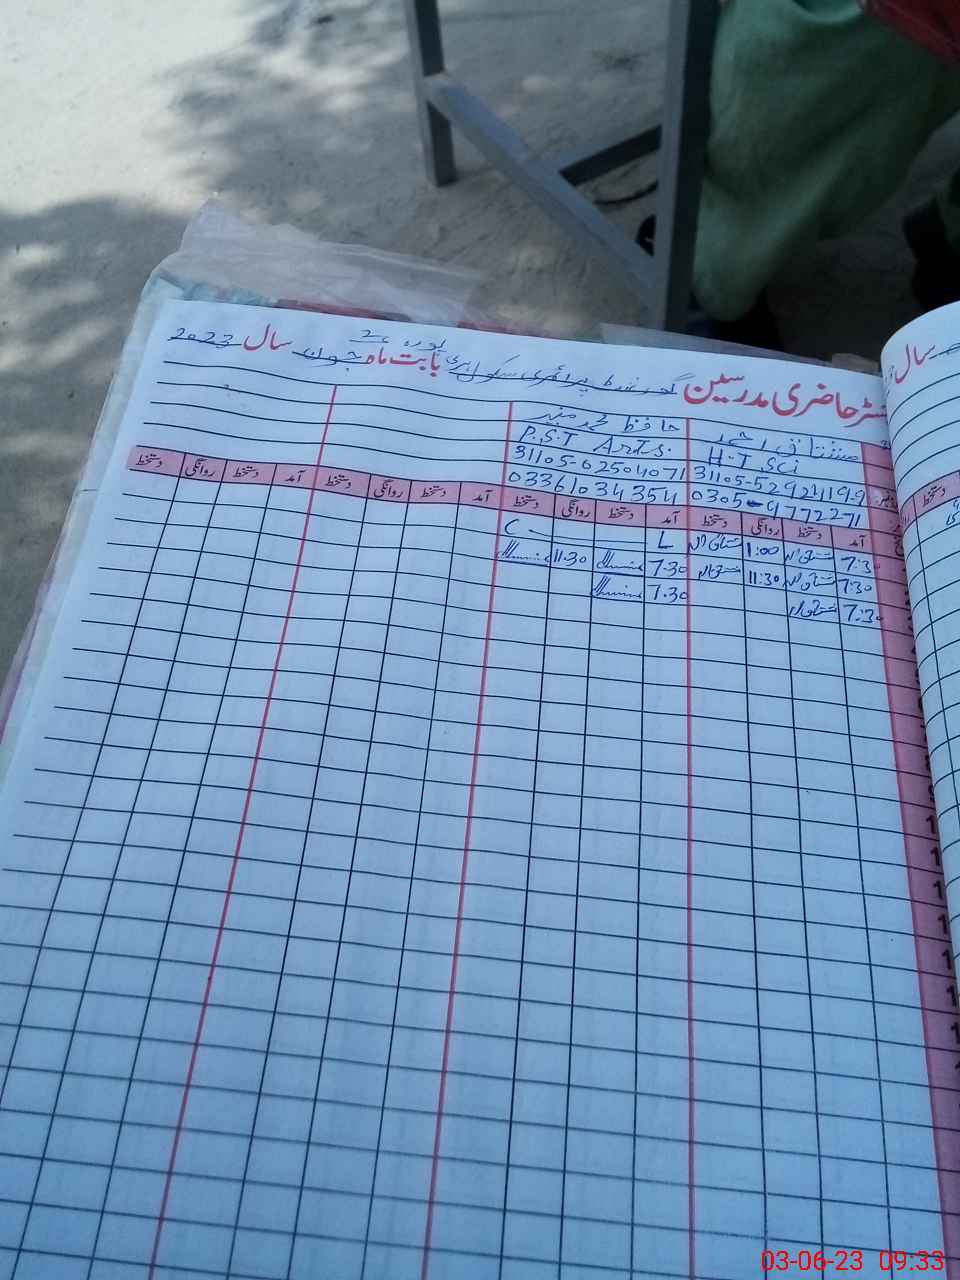 رجسٹر حاضری مدرسین گورنمنٹ پرائمری سکول بابت ماہ جون سال 2023
سال
مشتاق احمد
حافظ محمد منیر
H.T Sci
P.S.T Arts.
31105-5292419-9
31105-02504071
0305-9772271
03361034354
آمد دستخط روانگی دستخط آمد دستخط روانگی دستخط آمد دستخط روانگی دستخط آمد دستخط روانگی دستخط
دستخط
7:30 1:00 L C
7:30 11:30 7.30 11.30
7:30 7.30
03-06-23 09:33